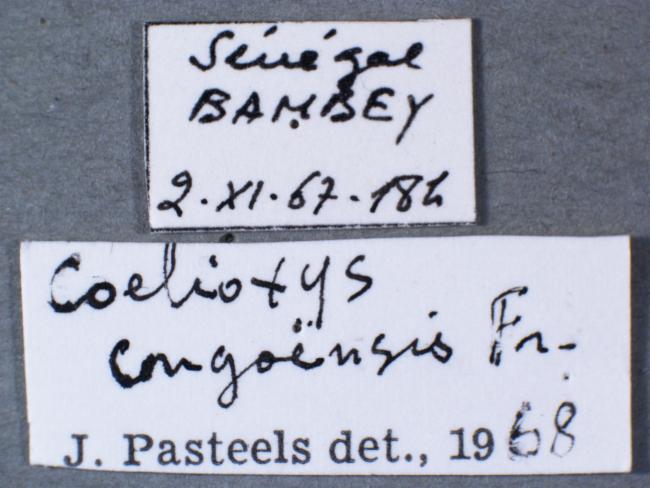 Sénégal
BAMBEY
2.XI.67.18h
Coelioxys
congoënsis Fr.
J. Pasteels det., 1968